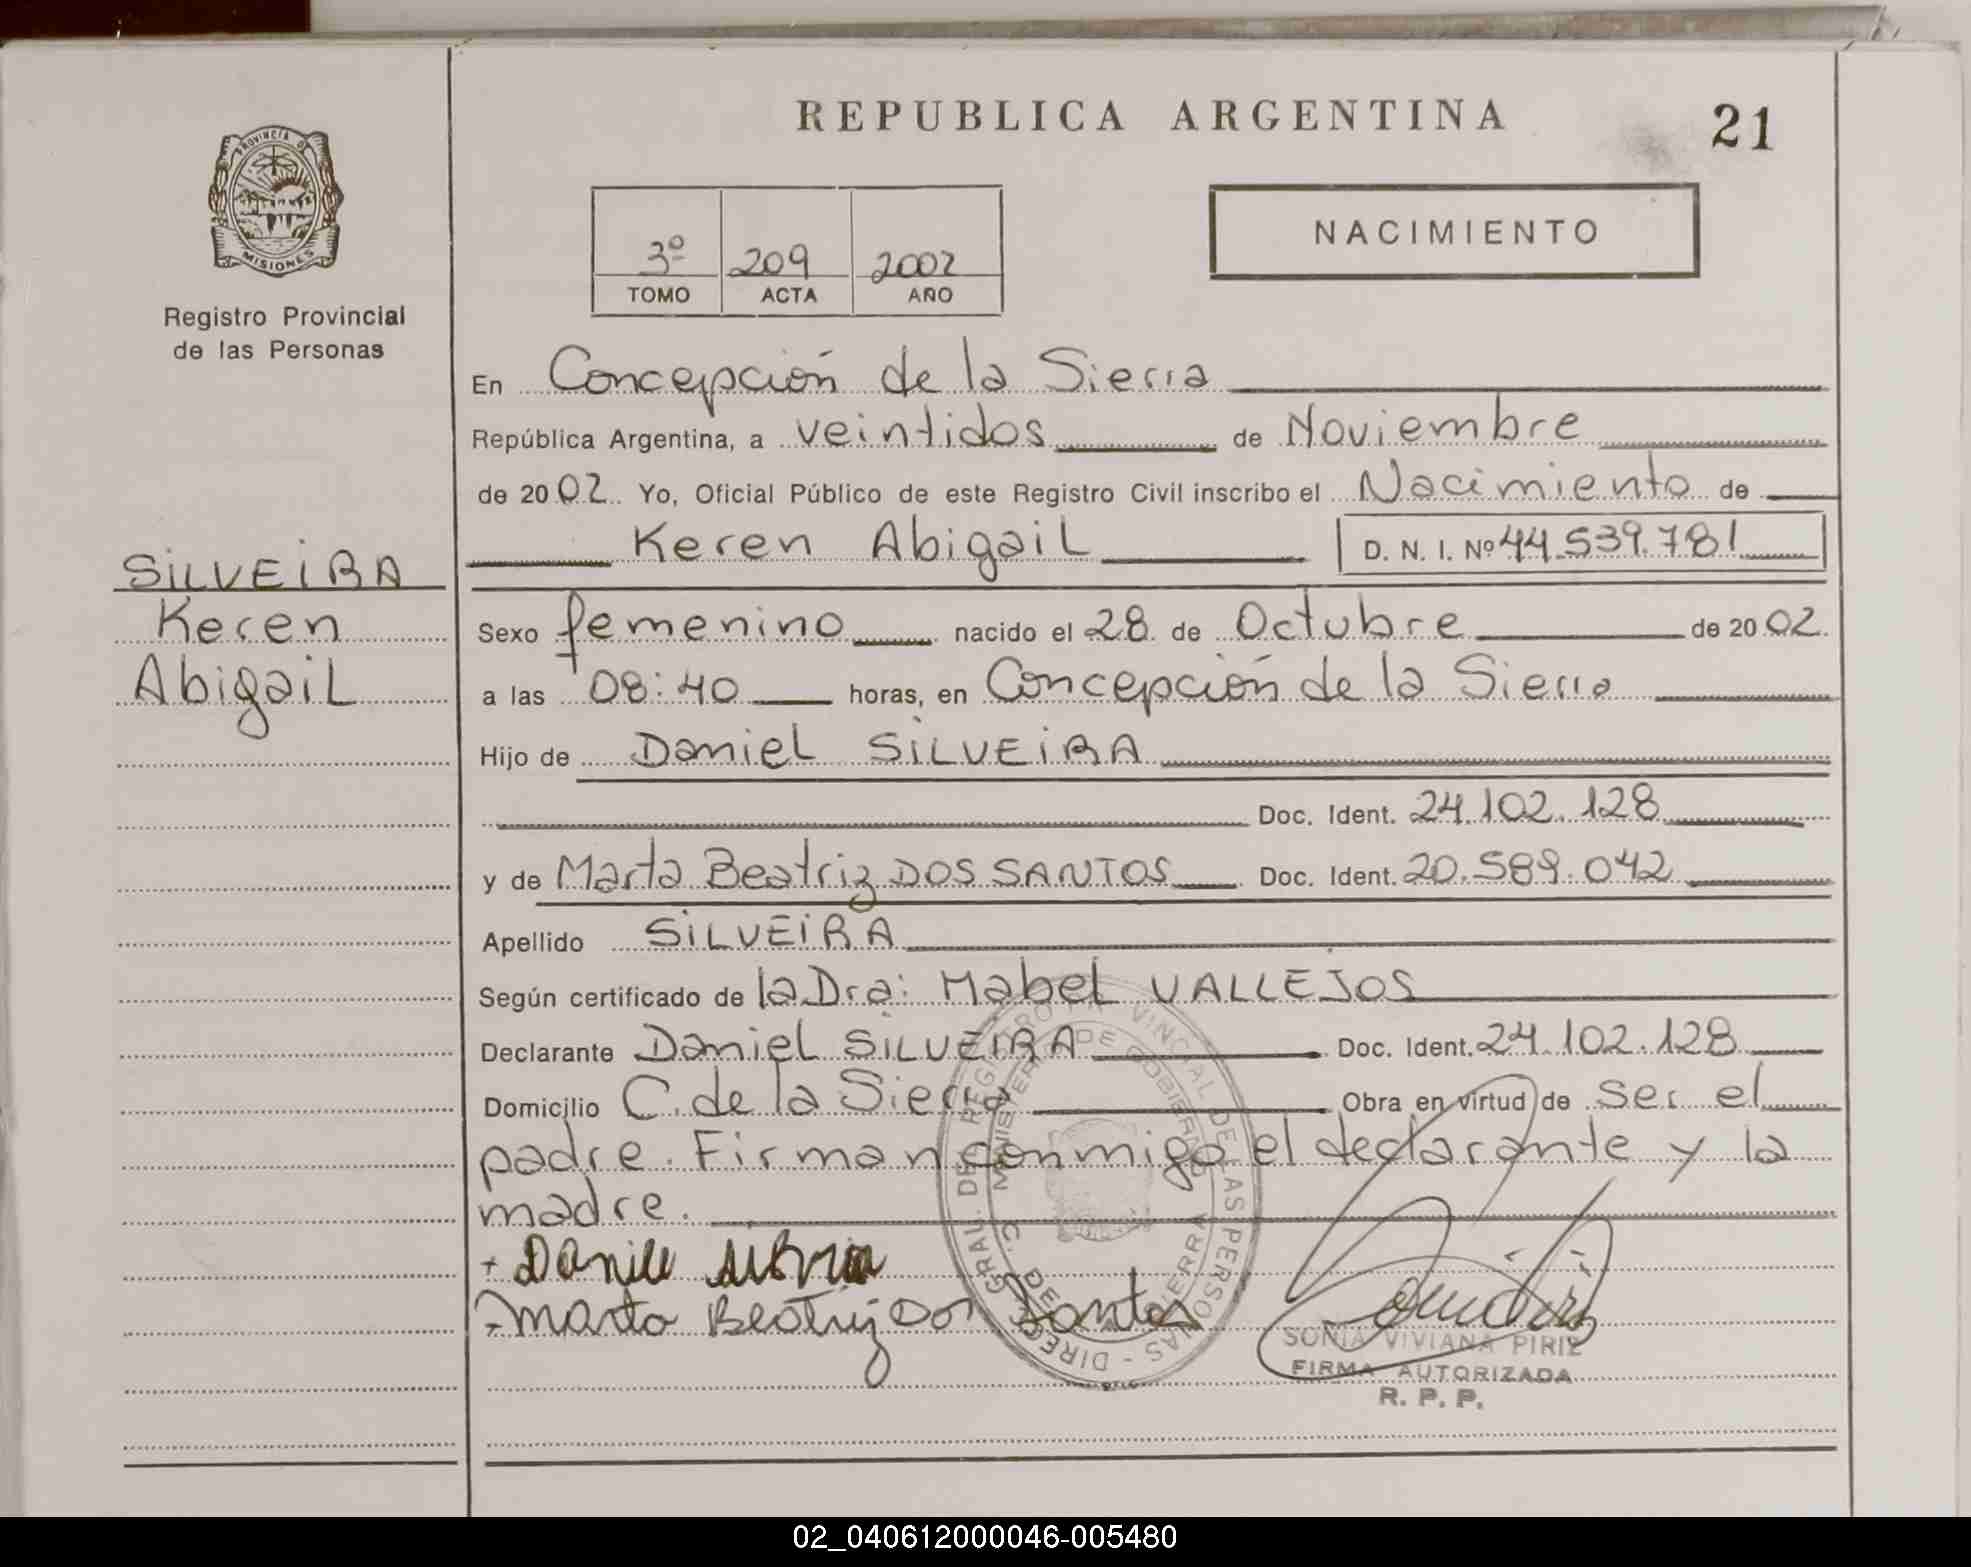 REPUBLICA ARGENTINA
21
PROVINCIA DE
MISIONES
Registro Provincial
de las Personas
3º 209 2002
TOMO ACTA AÑO
NACIMIENTO
En Concepción de la Sierra
República Argentina, a veintidos de Noviembre
de 2002 Yo, Oficial Público de este Registro Civil inscribo el Nacimiento de
Keren Abigail D. N. I. Nº 44.539.781
SILVEIRA
Keren
Abigail
Sexo femenino nacido el 28 de Octubre de 2002.
a las 08:40 horas, en Concepción de la Sierra
Hijo de Daniel SILVEIRA
Doc. Ident. 24.102.128
y de Marta Beatriz DOS SANTOS Doc. Ident. 20.589.042
Apellido SILVEIRA
Según certificado de la Dra: Mabel VALLEJOS
Declarante Daniel SILVEIRA Doc. Ident. 24.102.128
Domicilio C. de la Sierra Obra en virtud de ser el
padre. Firman conmigo el declarante y la
madre.
+ Daniel
- Marta Beatriz Dos Santos
SONIA VIVIANA PIRIZ
FIRMA AUTORIZADA
R. P. P.
02_040612000046-005480